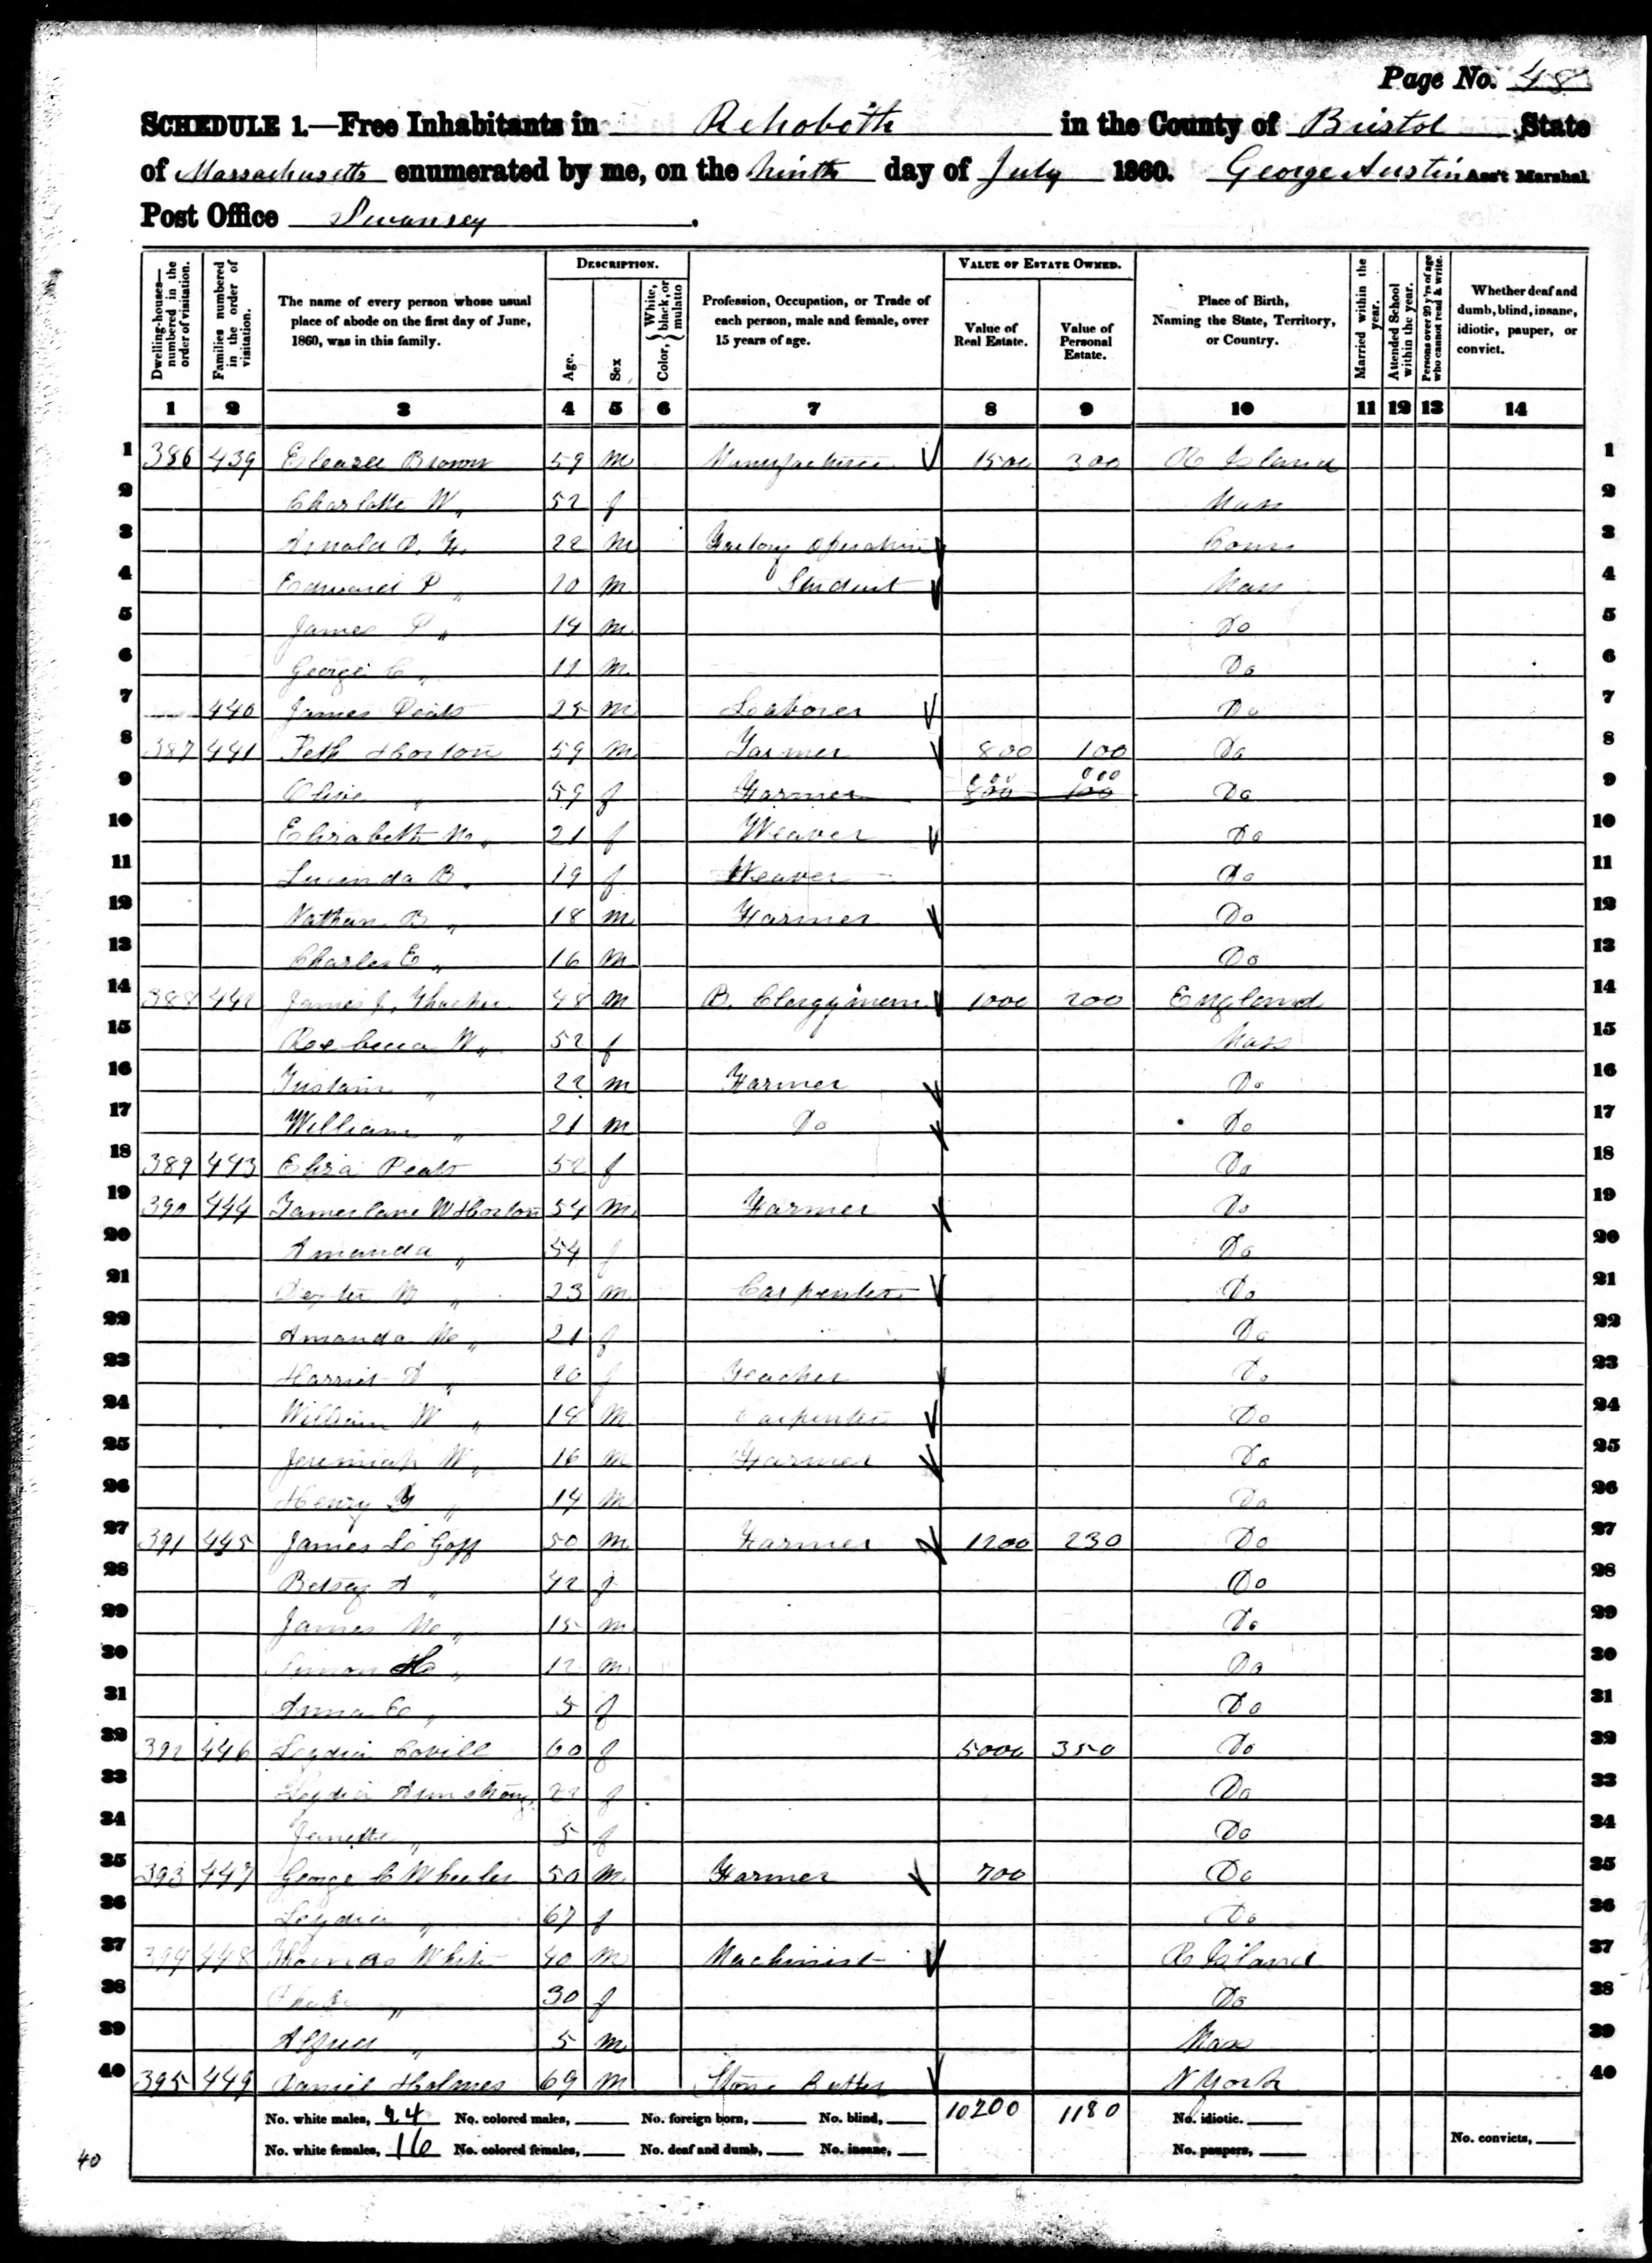 Page No. 48
SCHEDULE 1.—Free Inhabitants in Rehoboth in the County of Bristol State
of Massachusetts enumerated by me, on the Ninth day of July 1860. George Austin Ass't Marshal
Post Office Swansey.
Dwelling-houses—numbered in the order of visitation. Families numbered in the order of visitation. The name of every person whose usual place of abode on the first day of June, 1860, was in this family. DESCRIPTION. Age. Sex Color, White, black, or mulatto Profession, Occupation, or Trade of each person, male and female, over 15 years of age. VALUE OF ESTATE OWNED. Value of Real Estate. Value of Personal Estate. Place of Birth, Naming the State, Territory, or Country. Married within the year. Attended School within the year. Persons over 20 y'rs of age who cannot read & write. Whether deaf and dumb, blind, insane, idiotic, pauper, or convict.
1 2 3 4 5 6 7 8 9 10 11 12 13 14
1 386 439 Brown 59 m Manufacturer 1500 300 R Island 1
2 Charlotte W " 52 f Mass 2
3 Arnold 22 m Factory Operative Conn 3
4 Edward P " 20 m Student Mass 4
5 James P " 14 m Do 5
6 George C " 11 m Do 6
7 440 James Peats 25 m Leaborer Do 7
8 387 441 Seth Horton 59 m Farmer 800 100 Do 8
9 Olive " 59 f Farmer 800 100 Do 9
10 Elizabeth M " 21 f Weaver Do 10
11 Lucinda B " 19 f Weaver Do 11
12 Nathan B " 18 m Farmer Do 12
13 Charles E " 16 m Do 13
14 388 442 James J. Thacher 48 m B. Clergymem 1000 200 England 14
15 W " 52 f Mass 15
16 " 22 m Farmer Do 16
17 William " 21 m Do Do 17
18 389 443 Eliza Peats 52 f Do 18
19 390 444 Tamerlane W Horton 54 m Farmer Do 19
20 Amanda " 54 f Do 20
21 Dexter W " 23 m Carpenter Do 21
22 Amanda M " 21 f Do 22
23 Harriet A " 20 f Teacher Do 23
24 William W " 18 m Carpenter Do 24
25 Jeremiah W " 16 m Farmer Do 25
26 Henry G " 14 m Do 26
27 391 445 James L Goff 50 m Farmer 1200 230 Do 27
28 Betsey A " 42 f Do 28
29 James M " 15 m Do 29
30 Simon H " 12 m Do 30
31 Anna E " 5 f Do 31
32 392 446 Leydia Covill 60 f 5000 350 Do 32
33 Leydia Armstrong 22 f Do 33
34 Janette " 5 f Do 34
35 393 447 George C Wheeler 50 m Farmer 700 Do 35
36 Leydia " 67 f Do 36
37 394 448 Thomas White 40 m Machinist R Island 37
38 " 30 f Do 38
39 Alfred " 5 m Mass 39
40 395 449 Daniel Holmes 69 m Stone Cutter N York 40
No. white males, 24 No. colored males, No. foreign born, No. blind, 10200 1180 No. idiotic.
No. white females, 16 No. colored females, No. deaf and dumb, No. insane, No. paupers, No. convicts,
40